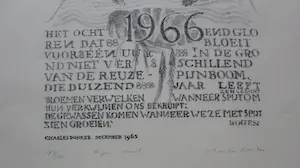 1966
HET OCHT END GLO
REN DAT BLOEIT
VOOR EEN UUR IN DE GRO
ND NIET VER SCHILLEND
VAN DE REUZE- PIJNBOOM,
DIE DUIZEND JAAR LEEFT
BLOEMEN VERWELKEN WANNEER SPIJT OM
HUN VERKWIJNEN ONS BEKRUIPT:
DE GEWASSEN KOMEN WANNEER WE ZE MET SPIJT
ZIEN GROEIEN.
DOGEN
CHARLES DONKER DECEMBER 1965